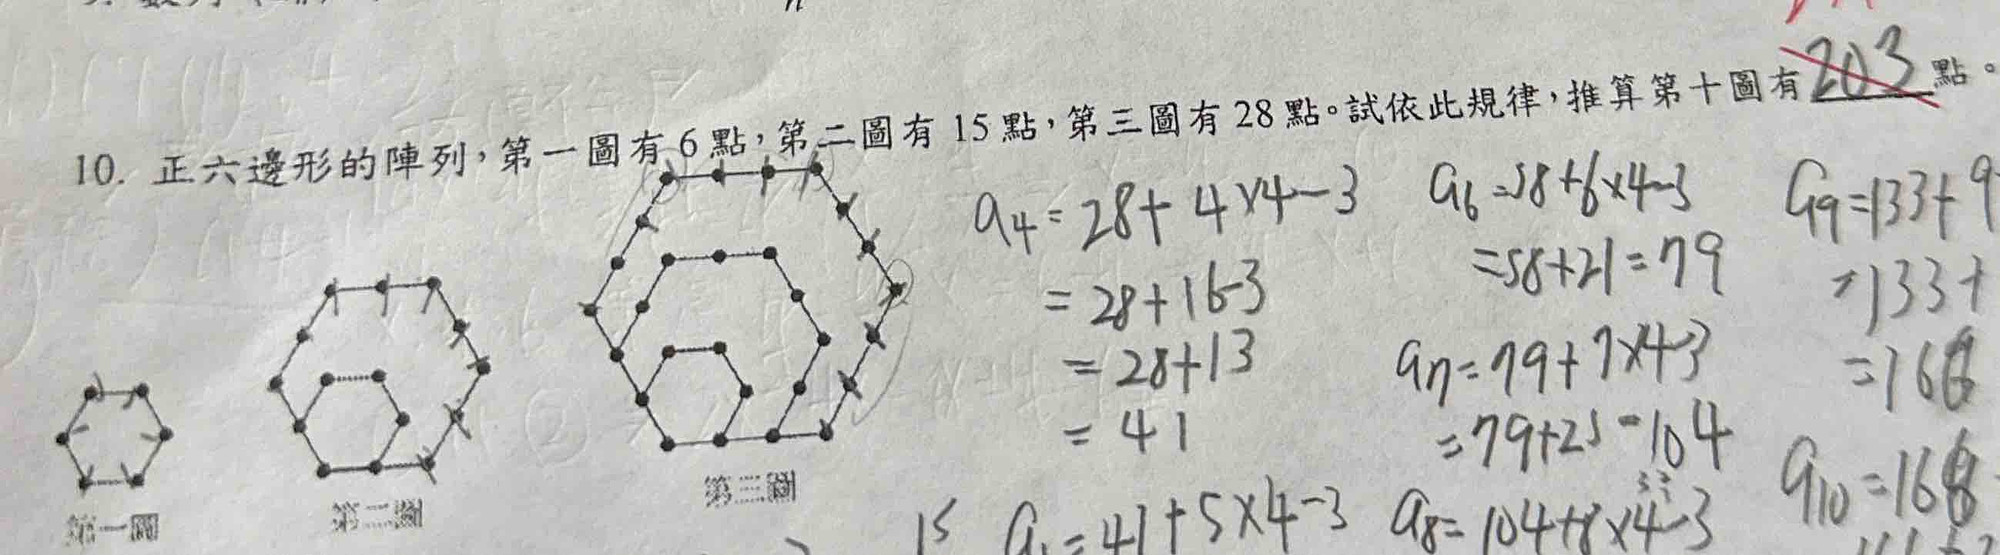 10. 正六邊形的陣列，第一圖有 6 點，第二圖有 15 點，第三圖有 28 點。試依此規律，推算第十圖有 203 點。
第一圖
第二圖
第三圖
a4 = 28 + 4×4-3
= 28 + 16-3
= 28 + 13
= 41
15
= 41 + 5×4-3
a6 = 58 + 6×4-3
= 58 + 21 = 79
a7 = 79 + 7×4-3
= 79 + 25 = 104
a8 = 104 + 8×4-3
a9 = 133 + 9
= 133 +
a10 =